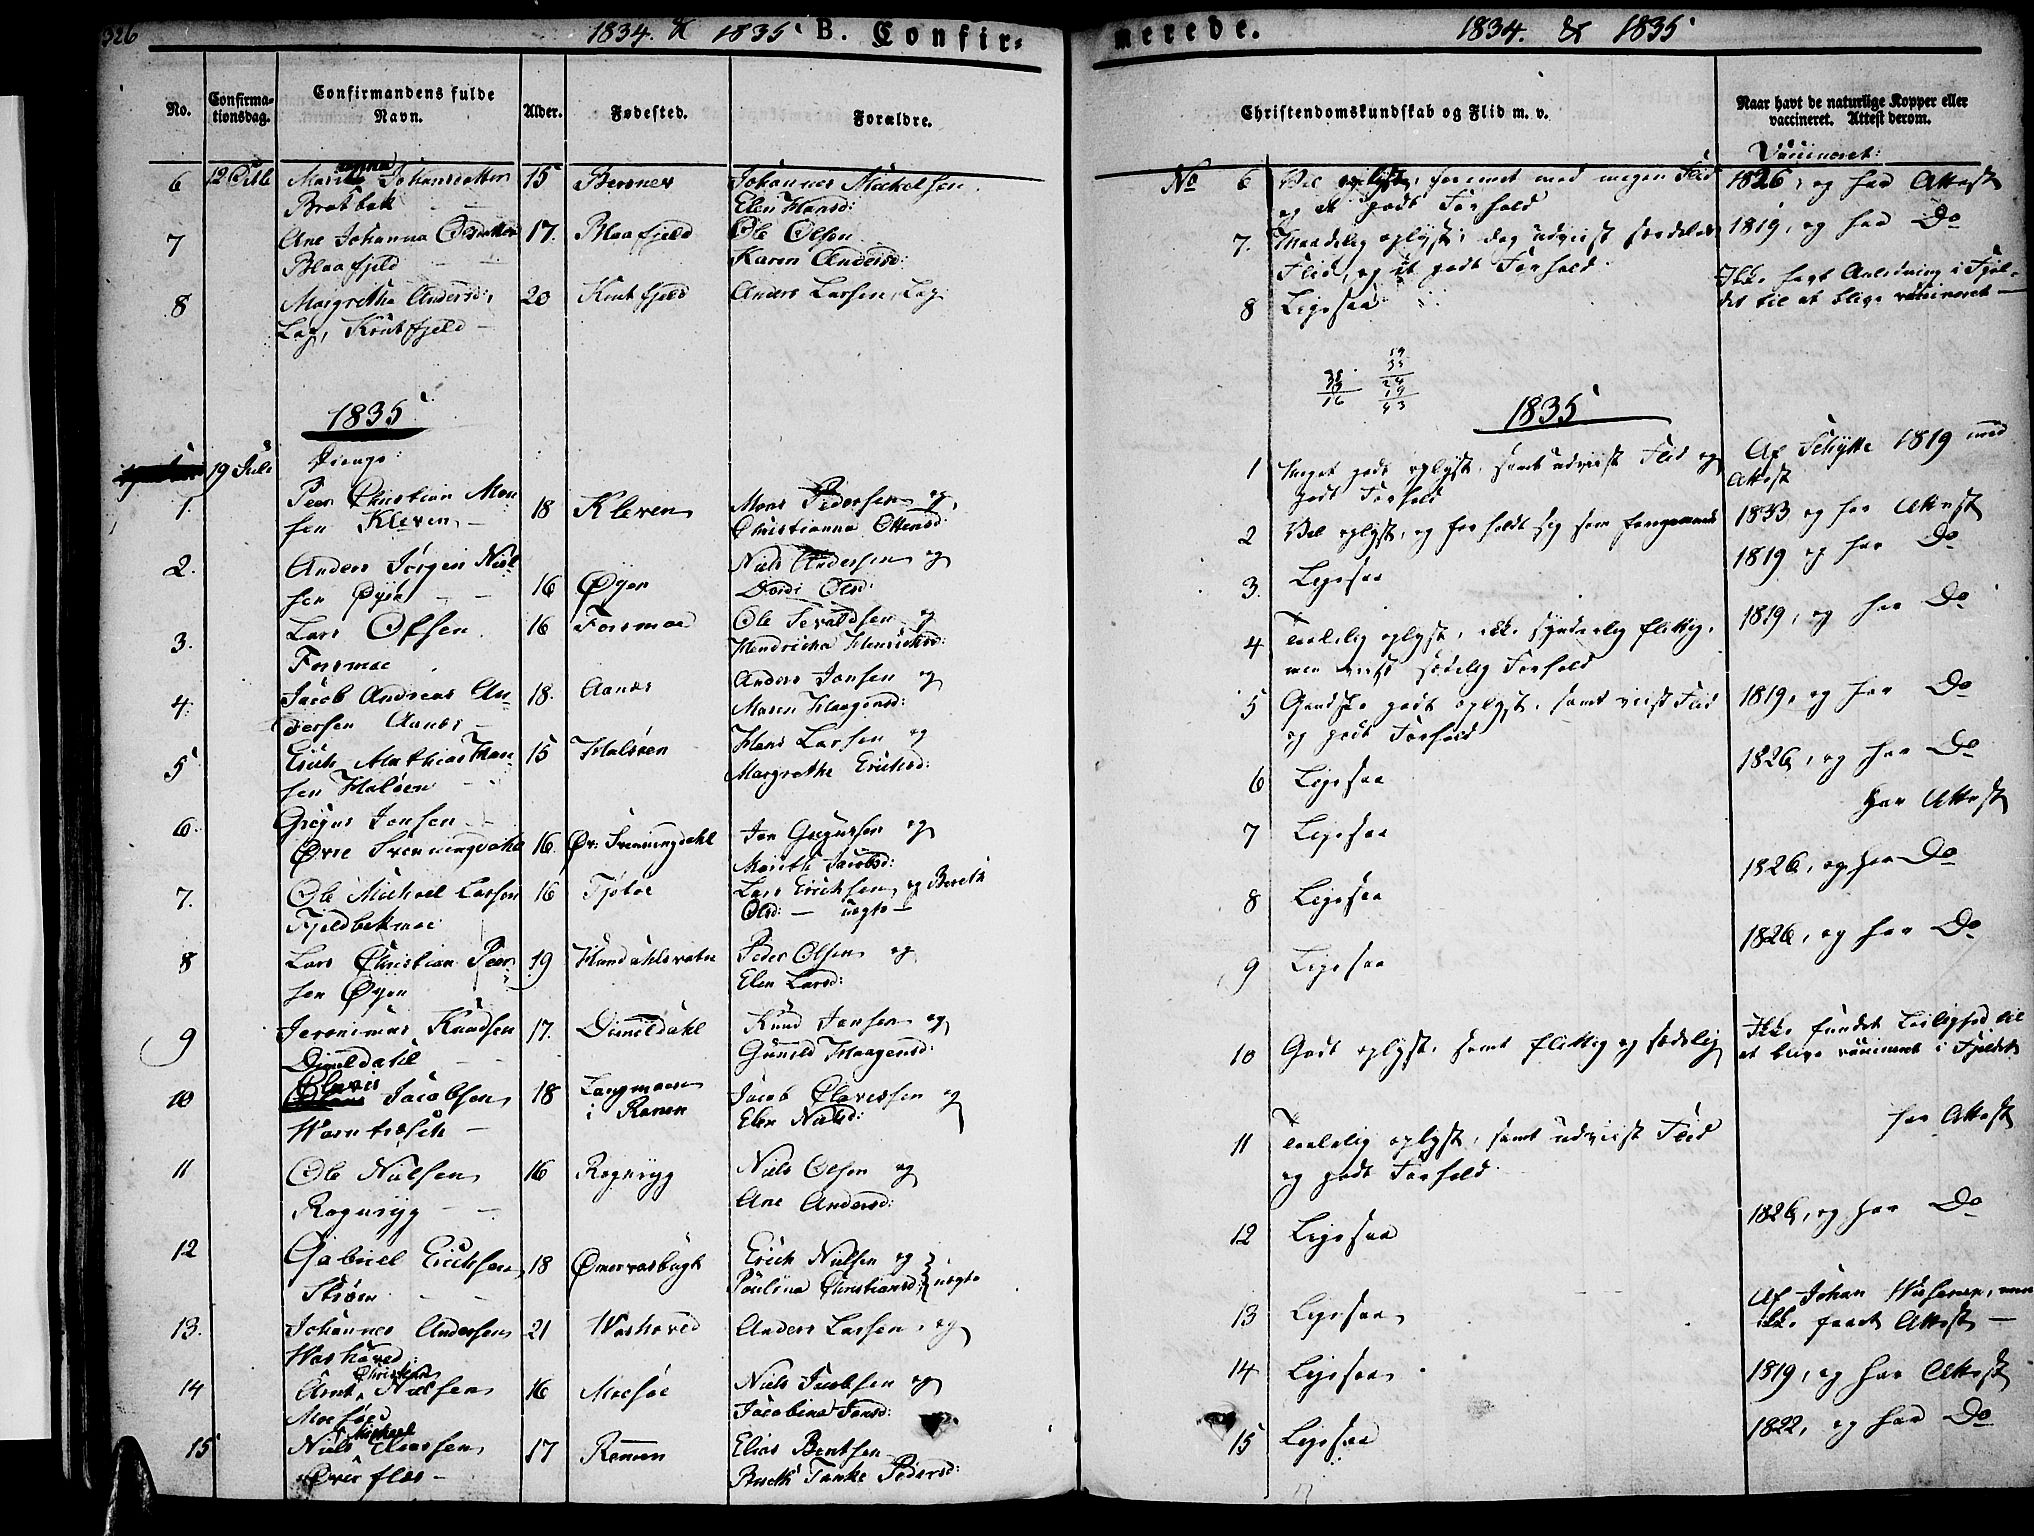 326
1834. & 1835 B. Confir-
No.
Confirma-
tionsdag.
Confirmandens fulde
Navn.
Alder.
Fødested.
Forældre.
6 12 Octb Johansdatter 15 Johannes Mickelsen
Elen Hansd:
7 Ane Johanna Olsdatter 17. Blaafjeld Ole Olsen
Blaafjeld Karen Andersd:
8 Margretha Andersd: 20 Krutfjeld Anders Larsen, Lap
Lap, Krutfjeld
1835
19 Juli Drenge:
1. Peer Christian Mon- 18 Kleven Mons Pedersen og
sen Kleven Christianna Ottersd:
2. Anders Jørgen Niel- 16 Øyen Niels Andersen og
sen Øyen Dordi Olsd:
3. Lars Olsen 16 Forsmoe Ole Sevaldsen og
Forsmoe Hendricha Henrichsd:
4. Jacob Andreas An- 18. Aanes Anders Jonsen og
dersen Aanes Maren Haagensd:
5 Erich Mathias Han- 15 Halsøen Hans Larsen og
sen Halsøen Margrethe Erichsd:
6. Gregus Jonsen
Øvre Svenningdahl 16. Øv: Svenningdahl Jon Gregussen og
Marith Jacobsd:
7. Ole Michael Larsen 16 Tjøtøe Lars Erichsen og Bereth
Fjeldbekmoe Olsd: — uegte
8 Lars Christian Peer- 19 Peder Olsen og
sen Øyen Elen Larsd:
9 Jeronimus Knudsen 17. Dimeldahl Knud Jonsen og
Dimeldahl Gunild Haagensd:
10 Clavis Jacobsen 18 Langmoen Jacob Clavessen og
i Ranen Elen Nielsd:
11 Ole Nielsen 16 Rognryg Niels Olsen og
Rognryg Ane Andersd:
12 Gabriel Erichsen 18 Erich Nielsen og
Paulina Christiansd: uegte
13. Johannes Andersen 21 Anders Larsen og
14 Arnt Christian Nielsen 16 Moesøe Niels Jacobsen og
Jacobina Jonsd:
15 Niels Michael Eliassen 17 Ranen Elias Bentsen
Bereth Tanke Pedersd:
merede. 1834. & 1835
Christendomskundskab og Flid m. v.
Naar havt de naturlige Kopper eller
vaccineret. Attest derom.
Vaccineret:
No 6 Vel oplyst, forenet med megen Flid 1826, og har Attest
og et godt Forhold
7. Maadelig oplyst; dog udviist særdeles 1819, og har Do
Flid, og et godt Forhold
8 Ligesaa
Ikke havt Anledning i Fjel-
det til at blive vaccineret
1835
1 Meget godt oplyst, samt udviist Flid og Af Schytte 1819 med
godt Forhold Attest
2 Vel oplyst, og forholdt sig som foregaaende 1833 og har Attest
3. Ligesaa 1819 og har Do
4 Taalelig oplyst, ikke synderlig flittig, 1819, og har Do
men viist sædelig Forhold
5 Gandske godt oplyst, samt viist Flid 1819, og har Do
og godt Forhold
6 Ligesaa 1826, og har Do
7 Ligesaa har Attest
8 Ligesaa 1826, og har Do
9 Ligesaa 1826, og har Do
10 Godt oplyst, samt flittig og sædelig Ikke fundet Leilighed til
at blive vaccineret i Fjeldet
11 Taalelig oplyst, samt udviist Flid har Attest
og godt Forhold
12 Ligesaa 1826, og har Do
13 Ligesaa Af Johan men
ikke faaet Attest —
14 Ligesaa 1819, og har Attest
15 Ligesaa 1822, og har Do